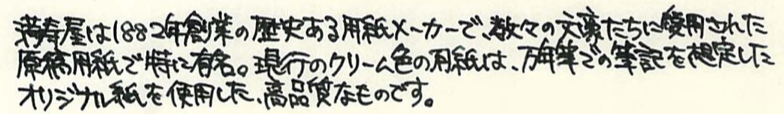 満寿屋は1882年創業の歴史ある用紙メーカーで、数々の文豪たちに愛用された
原稿用紙で特に有名。現行のクリーム色の用紙は、万年筆での筆記を想定した
オリジナル紙を使用した、高品質なものです。